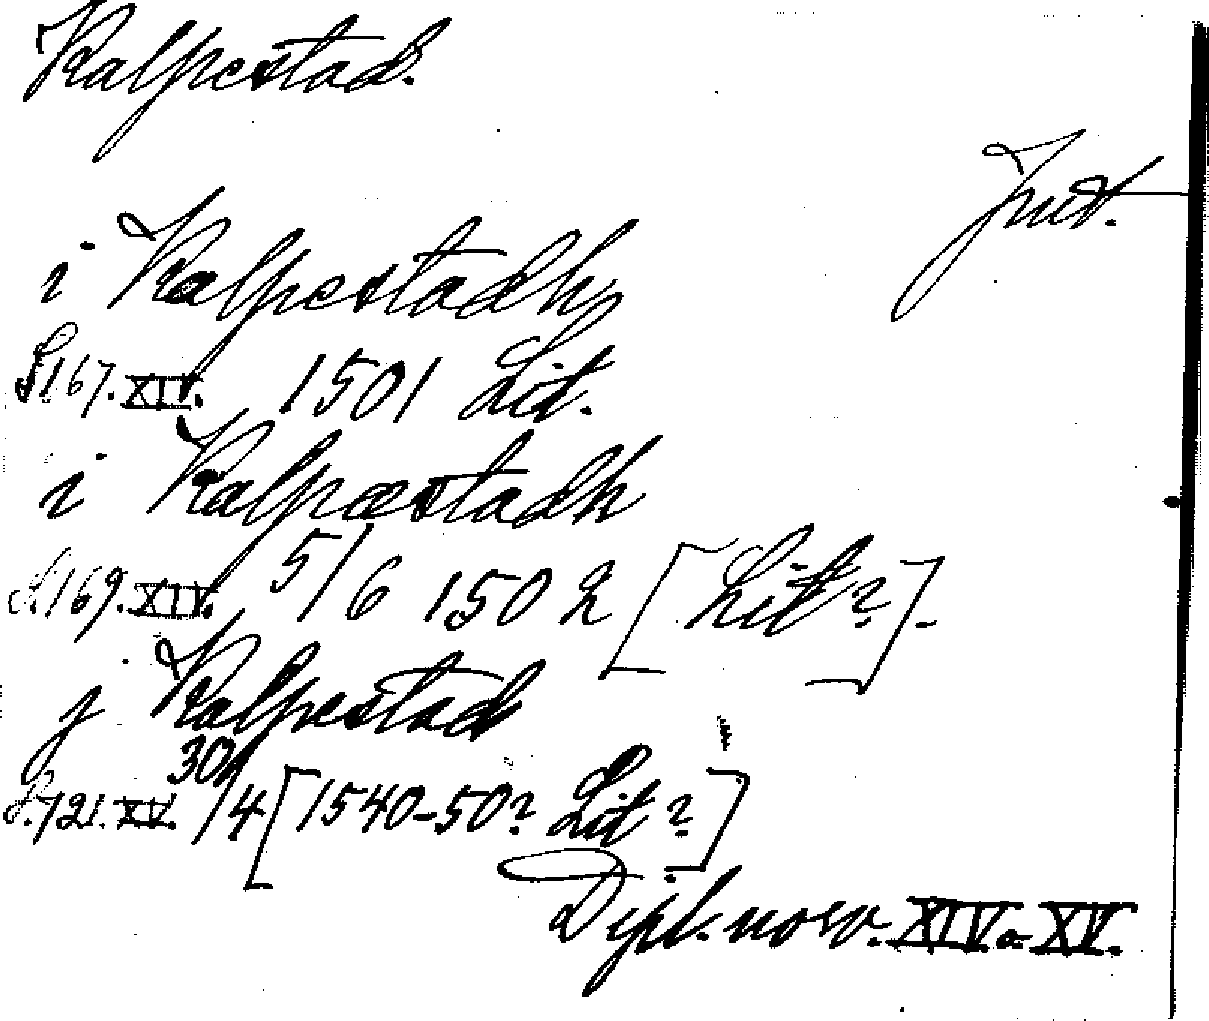 Kalpestad.
Just.
i Kalpestadh
S. 167. XIV. 1501 Lit.
i Kalpæstadh
S. 169. XIV. 5/6 1502 [Lit?].
j Kalpestad
S. 721. XV. 30/4 [1540-50? Lit?]
Dipl. norv. XIV o XV.